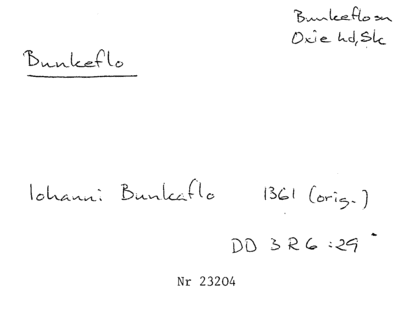 Bunkeflo sn
Oxie hd, Sk
Bunkeflo
Iohanni Bunkaflo 1361 (orig.)
DD 3 R 6 : 29
Nr 23204